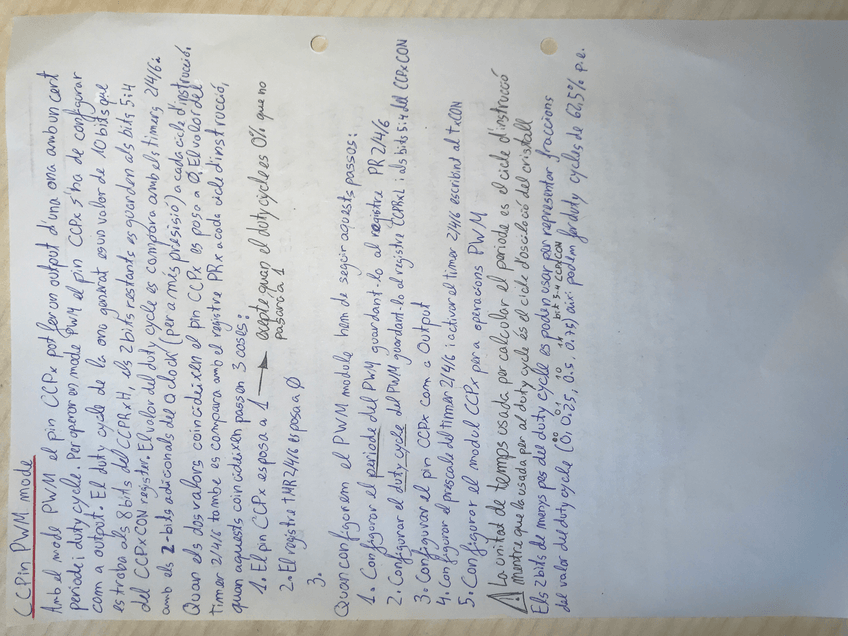 CCP in PWM mode
Amb el mode PWM el pin CCPx pot fer un output d'una ona amb un cert
periode i duty cycle. Per operar en mode PWM el pin CCPx s'ha de configurar
com a output. El duty cycle de la ona generat es un valor de 10 bits que
es troba als 8 bits del CCPRxH, els 2 bits restants es guarden als bits 5:4
del CCPxCON register. El valor del duty cycle es compara amb els timers 2/4/6
amb els 2-bits adicionals del Q clock (per a més presisió) a cada cicle d'instrucció.
Quan els dos valors coincideixen el pin CCPx es posa a 0. El valor del
timer 2/4/6 també es compara amb el registre PRx a cada cicle d'instrucció,
quan aquests coincideixen passen 3 cases:
1. El pin CCPx es posa a 1 → exepte quan el duty cycle es 0% que no
pasará a 1
2. El registre TMR2/4/6 es posa a 0
3.
Quan configurem el PWM module hem de seguir aquests passos:
1. Configurar el periode del PWM guardant-lo al registre PR2/4/6
2. Configurar el duty cycle del PWM guardant-lo al registre CCPRxL i als bits 5:4 del CCPxCON
3. Configurar el pin CCPx com a Output
4. Configurar el prescale del timer 2/4/6 i activar el timer 2/4/6 escribind al TxCON
5. Configurar el modul CCPx per a operacions PWM
⚠ La unitat de temps usada per calcular el periode es el cicle d'instrucció
mentre que la usada per al duty cycle és el cicle d'oscilació del cristall
Els 2 bits de menys pes del duty cycle es poden usar per representar fraccions
del valor del duty cycle (0, 0.25, 0.5, 0.75) així podem fer duty cycles de 62,5% p.e.
00 01 10 11 bits 5-4 CCPxCON